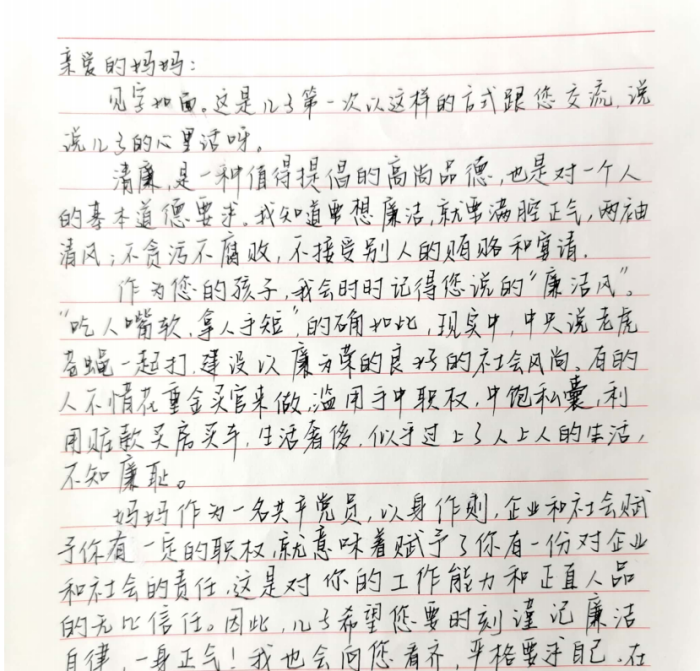 亲爱的妈妈:
见字如面。这是儿子第一次以这样的方式跟您交流,说
说儿子的心里话呀。
清廉,是一种值得提倡的高尚品德,也是对一个人
的基本道德要求。我知道要想廉洁,就要满腔正气,两袖
清风;不贪污不腐败,不接受别人的贿赂和宴请.
作为您的孩子,我会时时记得您说的“廉洁风”。
“吃人嘴软,拿人手短”的确如此,现实中,中央说老虎
苍蝇一起打,建设以廉为荣的良好的社会风尚。有的
人不惜花重金买官来做,滥用手中职权,中饱私囊,利
用赃款买房买车,生活奢侈,似乎过上了人上人的生活,
不知廉耻。
妈妈作为一名共产党员,以身作则,企业和社会赋
予你有一定的职权,就意味着赋予了你有一份对企业
和社会的责任,这是对你的工作能力和正直人品
的无比信任。因此,儿子希望您要时刻谨记廉洁
自律,一身正气!我也会向您看齐,严格要求自己,在